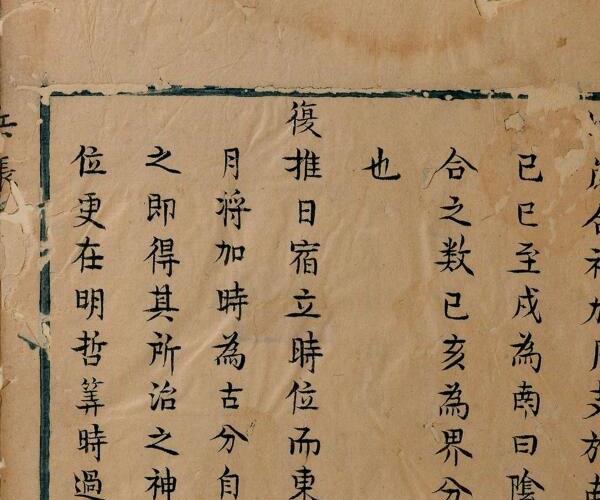 歲合神加月支於
已巳至戌為南曰陰
合之数已亥為界分
也
復推日宿立時位而東
月將加時為古分自
之即得其所治之神
位更在明哲筭時過